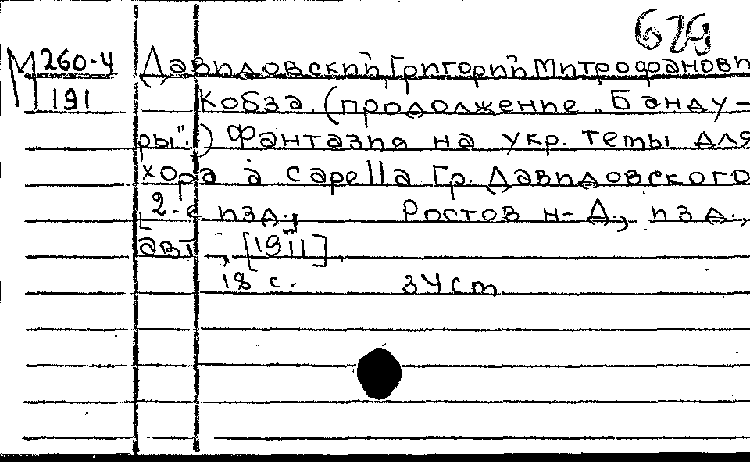 629
М 260-4 Давидовский Григорий Митрофанови
191 Кобза. (продолжение „Банду-
ры".) Фантазия на укр. темы для
хора à capella Гр. Давидовского
[2-е изд., Ростов н-Д., изд.,
авт., [1911]
18 с. 34 cm